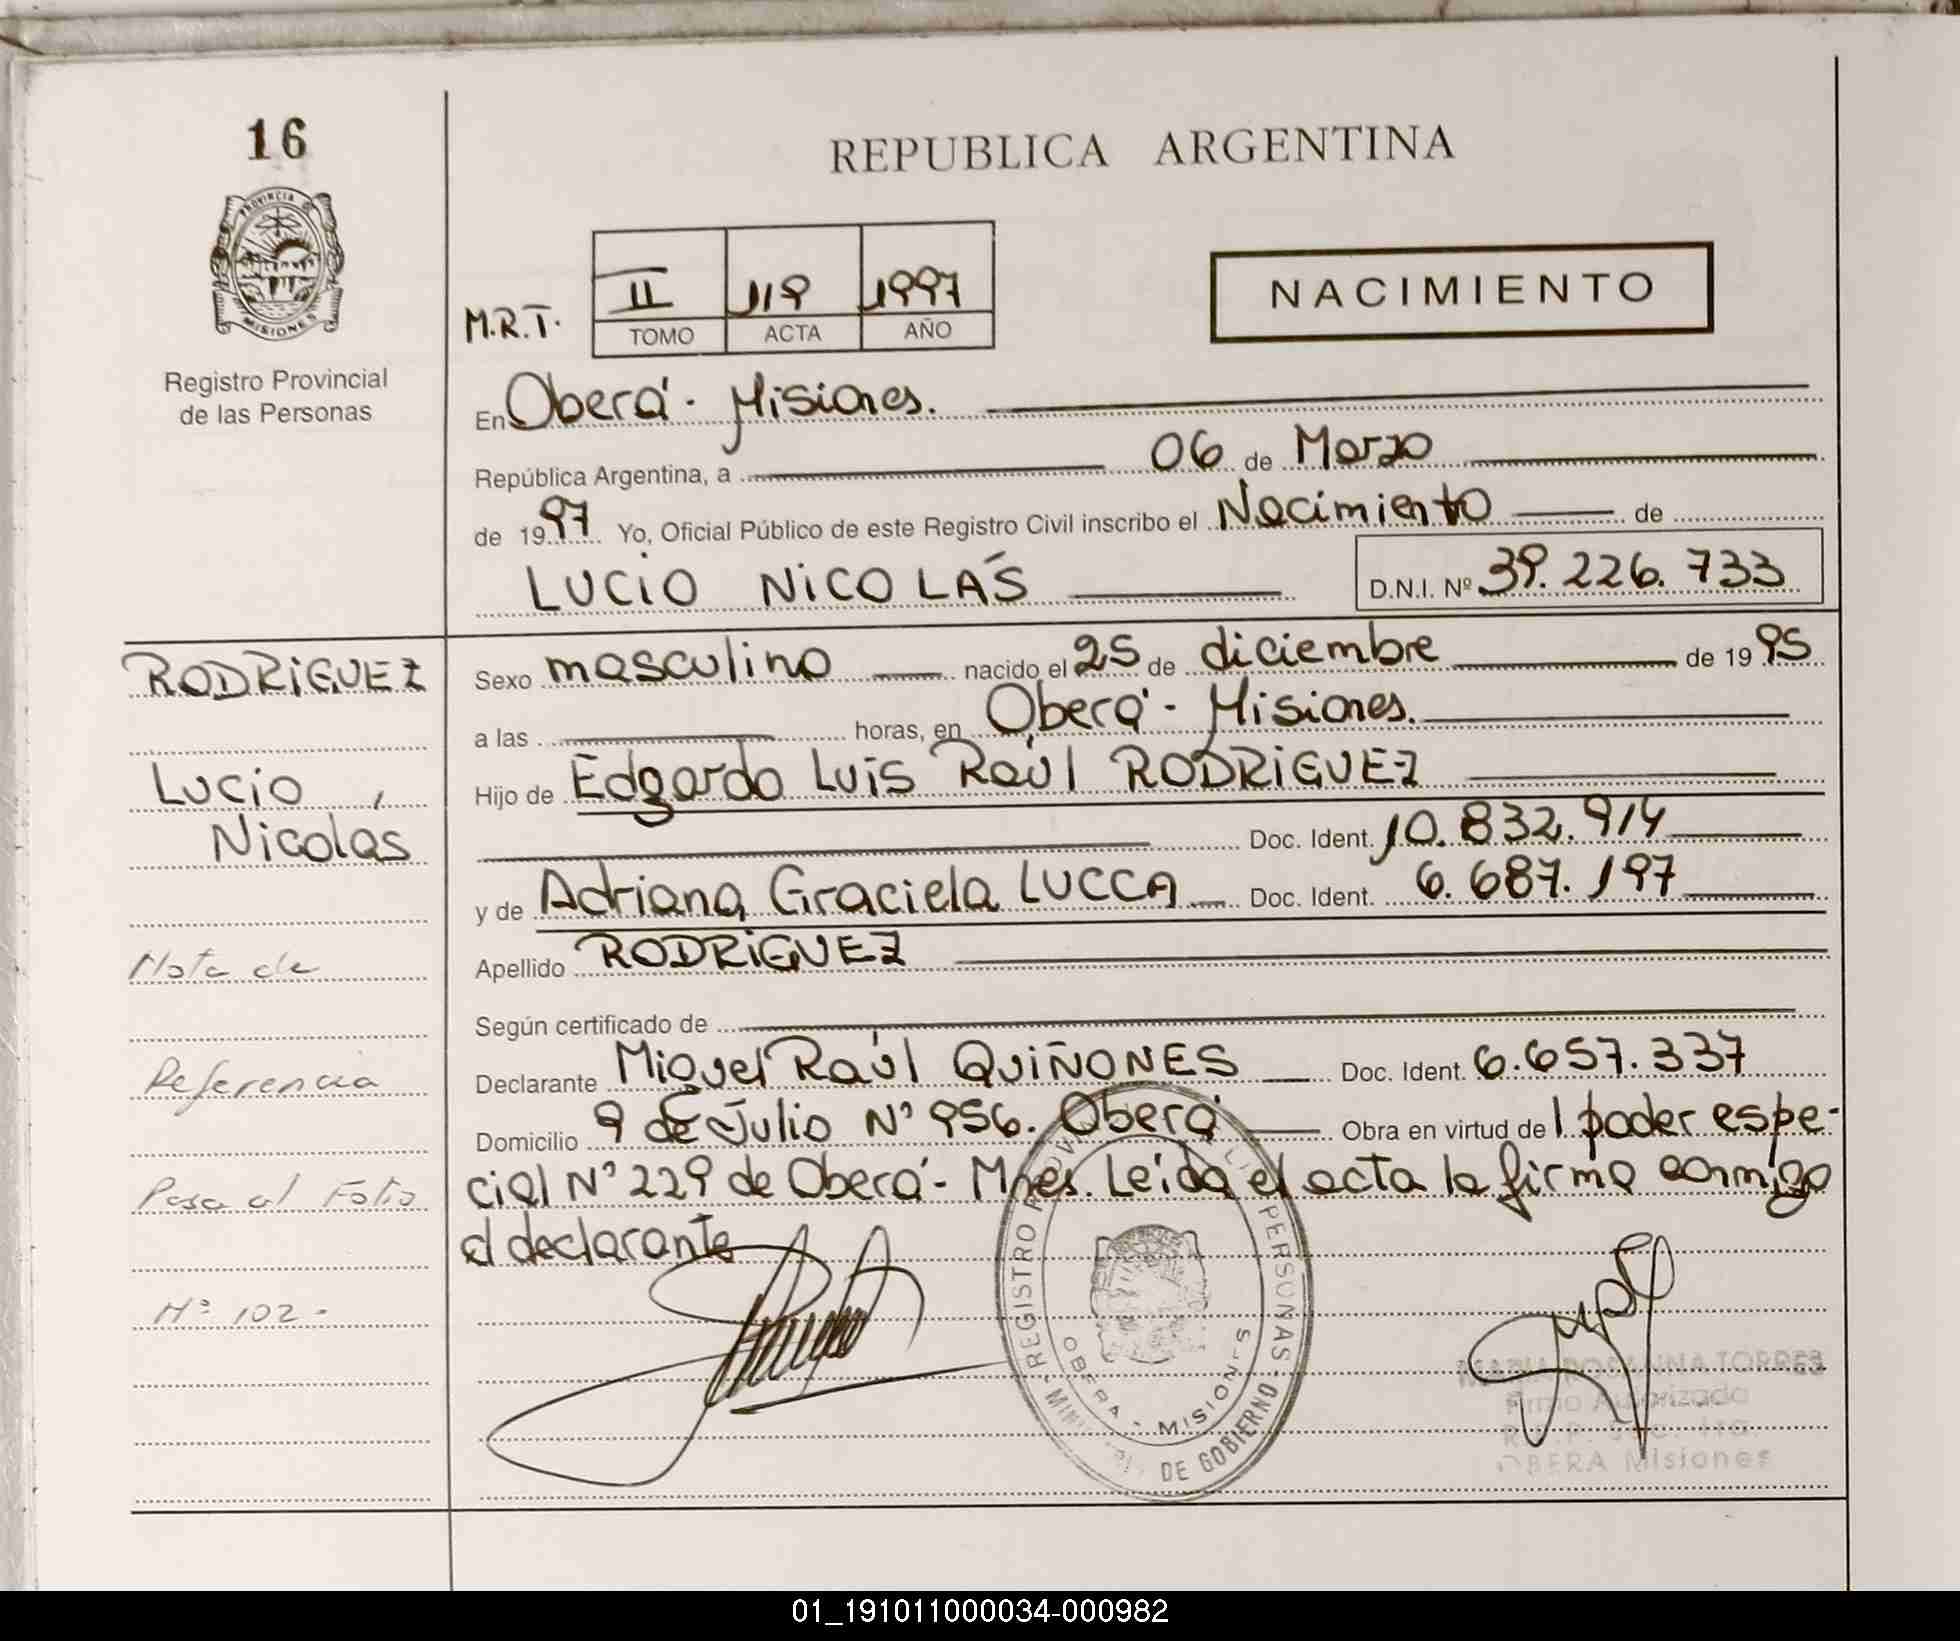 16
REPUBLICA ARGENTINA
PROVINCIA DE
MISIONES
Registro Provincial
de las Personas
NACIMIENTO
M.R.T.
II 119 1997
TOMO ACTA AÑO
En Oberá - Misiones.
República Argentina, a 06 de Marzo
de 1997 Yo, Oficial Público de este Registro Civil inscribo el Nacimiento de
LUCIO NICOLÁS D.N.I. Nº 39.226.733
RODRIGUEZ
Lucio,
Nicolás
Nota de
Referencia
Pasa al Folio
Nº 102-
Sexo masculino nacido el 25 de diciembre de 1995
a las horas, en Oberá - Misiones.
Hijo de Edgardo Luis Raúl RODRIGUEZ
Doc. Ident. 10.832.914
y de Adriana Graciela LUCCA Doc. Ident. 6.687.197
Apellido RODRIGUEZ
Según certificado de
Declarante Miguel Raúl QUIÑONES Doc. Ident. 6.657.337
Domicilio 9 de Julio Nº 956. Oberá Obra en virtud de 1 poder espe-
cial Nº 229 de Oberá - Mnes. Leída el acta la firma conmigo
el declarante
REGISTRO PERSONAS
OBERA - MISIONES
DE GOBIERNO
TORRES
Firma Autorizada
OBERA Misiones
01_191011000034-000982